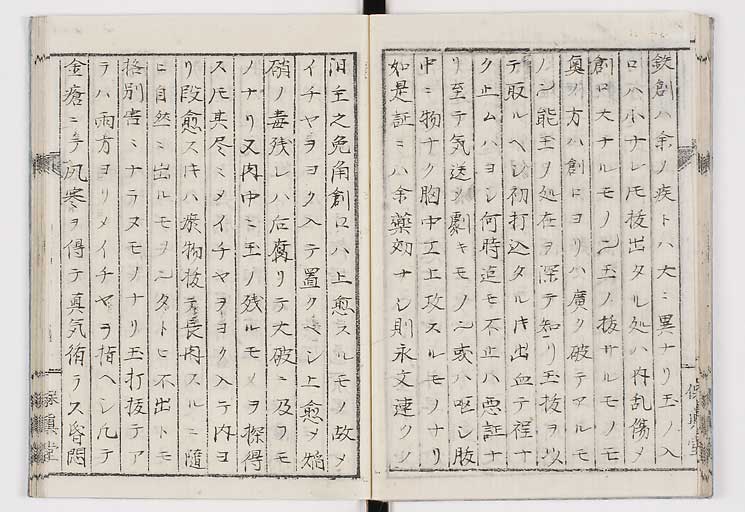 鉄創ハ余ノ疾トハ大ニ異ナリ玉ノ入
口ハ小ナレ𪜈抜出タル処ハ肉乱傷メ
創口大ナルモノ乄玉ノ抜サルモノモ
奥ノ方ハ創口ヨリハ廣ク破テアルモ
ノ乄能玉ノ処在ヲ深テ知リ玉抜ヲ以
テ取ルヘシ初打込タル時出血テ程ナ
ク止ムハヨシ何時迠モ不止ハ悪証ナ
リ至テ気送ツ劇キモノ乄或ハ嘔シ腹
中ニ物ナク胸中エ上攻スルモノナリ
如是証ニハ余藥効ナシ則永文連クツ
泪主之免角創口ハ上愈スルモノ故メ
イチヤヲヨク入テ置クヘシ上愈メ焔
硝ノ毒残レハ后腐リテ大破ニ及フモ
ノナリ又肉中ニ玉ノ残ルモメヲ探得
ス𪜈其尽ミメイチヤヲヨク入テ内ヨ
リ段愈スキハ瘀物抜テ長肉スルニ隨
ヒ自然ニ出ルモヲ乄タトヒ不出トモ
格別害ミナラヌモノナリ玉打抜テア
テハ両方ヨリメイチヤヲ指ヘシ凢テ
金瘡ニ手风寒ヲ得テ真気衛テス昏悶
保真堂